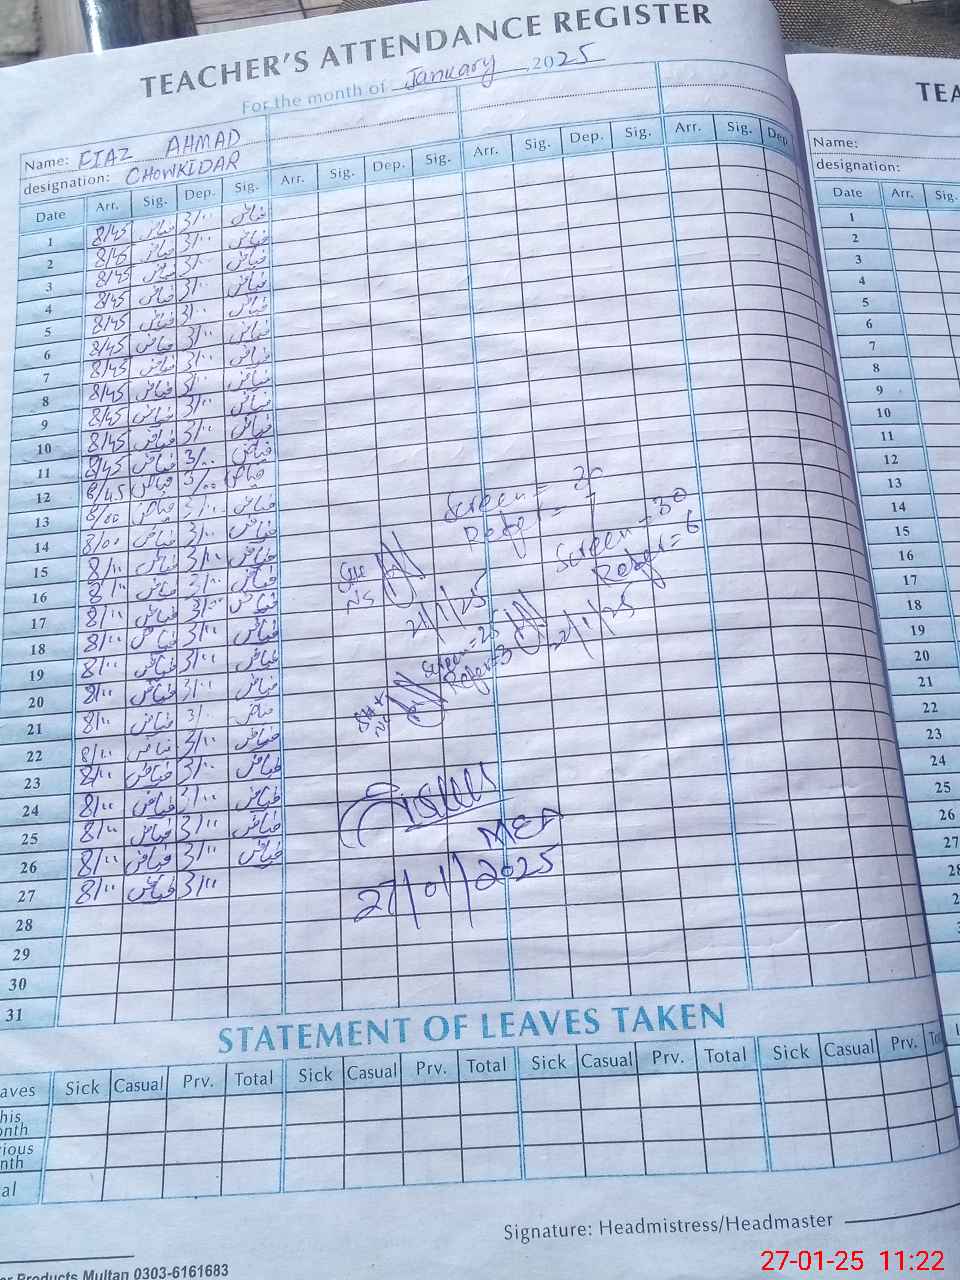 TEACHER'S ATTENDANCE REGISTER
For the month of January 2025
Name: EJAZ AHMAD
designation: CHOWKIDAR
Date Arr. Sig. Dep. Sig. Arr. Sig. Dep. Sig. Arr. Sig. Dep. Sig. Arr. Sig. Dep
1 8/45 فیاض 3/00 فیاض
2 8/45 فیاض 3/00 فیاض
3 8/45 فیاض 3/00 فیاض
4 8/45 فیاض 3/00 فیاض
5 8/45 فیاض 3/00 فیاض
6 8/45 فیاض 3/00 فیاض
7 8/45 فیاض 3/00 فیاض
8 8/45 فیاض 3/00 فیاض
9 8/45 فیاض 3/00 فیاض
10 8/45 فیاض 3/00 فیاض
11 8/45 فیاض 3/00 فیاض
12 8/45 فیاض 3/00 فیاض
13 8/00 فیاض 3/00 فیاض
14 8/00 فیاض 3/00 فیاض
15 8/00 فیاض 3/00 فیاض
16 8/00 فیاض 3/00 فیاض
17 8/00 فیاض 3/00 فیاض
18 8/00 فیاض 3/00 فیاض
19 8/00 فیاض 3/00 فیاض
20 8/00 فیاض 3/00 فیاض
21 8/00 فیاض 3/00 فیاض
22 8/00 فیاض 3/00 فیاض
23 8/00 فیاض 3/00 فیاض
24 8/00 فیاض 3/00 فیاض
25 8/00 فیاض 3/00 فیاض
26 8/00 فیاض 3/00 فیاض
27 8/00 فیاض 3/00
28
29
30
31
Screen =
Refer =
Screen = 30
Refer = 6
Screen = 25
Refer = 3
MEA
27/01/2025
STATEMENT OF LEAVES TAKEN
aves Sick Casual Prv. Total Sick Casual Prv. Total Sick Casual Prv. Total Sick Casual Prv. To
his
onth
ious
nth
al
Signature: Headmistress/Headmaster
er Products Multan 0303-6161683
TEA
Name:
designation:
Date Arr. Sig.
1
2
3
4
5
6
7
8
9
10
11
12
13
14
15
16
17
18
19
20
21
22
23
24
25
26
27
28
27-01-25 11:22